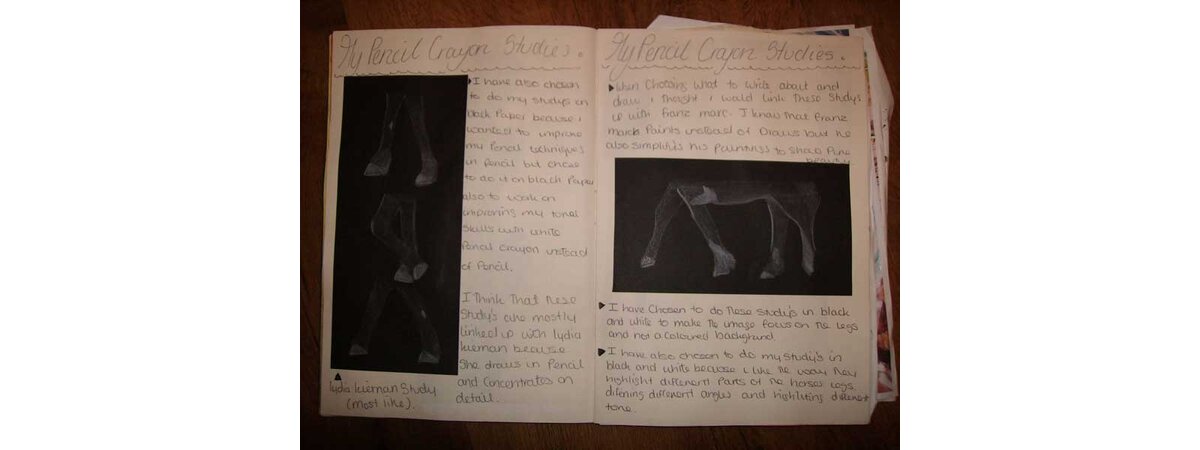 My Pencil Crayon Studies.
I have also chosen
to do my study's on
black Paper because i
wanted to improve
my Pencil techniques
in Pencil but chose
to do it on black Paper
also to work on
improving my tonal
skills with white
Pencil crayon instead
of Pencil.
I Think That these
Study's are mostly
linked up with lydia
kiernan because
She draws in Pencil
and Concentrates on
detail.
lydia kiernan Study
(most like).
My Pencil Crayon Studies.
When Choosing what to write about and
draw i thought i would link These Study's
up with franz marc. I know that franz
marc Paints instead of Draws but he
also simplifies his paintings to show Pure
beauty
I have Chosen to do These Study's in black
and white to make the image focus on the legs
and not a coloured background
I have also chosen to do my Study's in
black and white because i like the way they
highlight different Parts of the horses legs
different angles and highlighting different
tone.